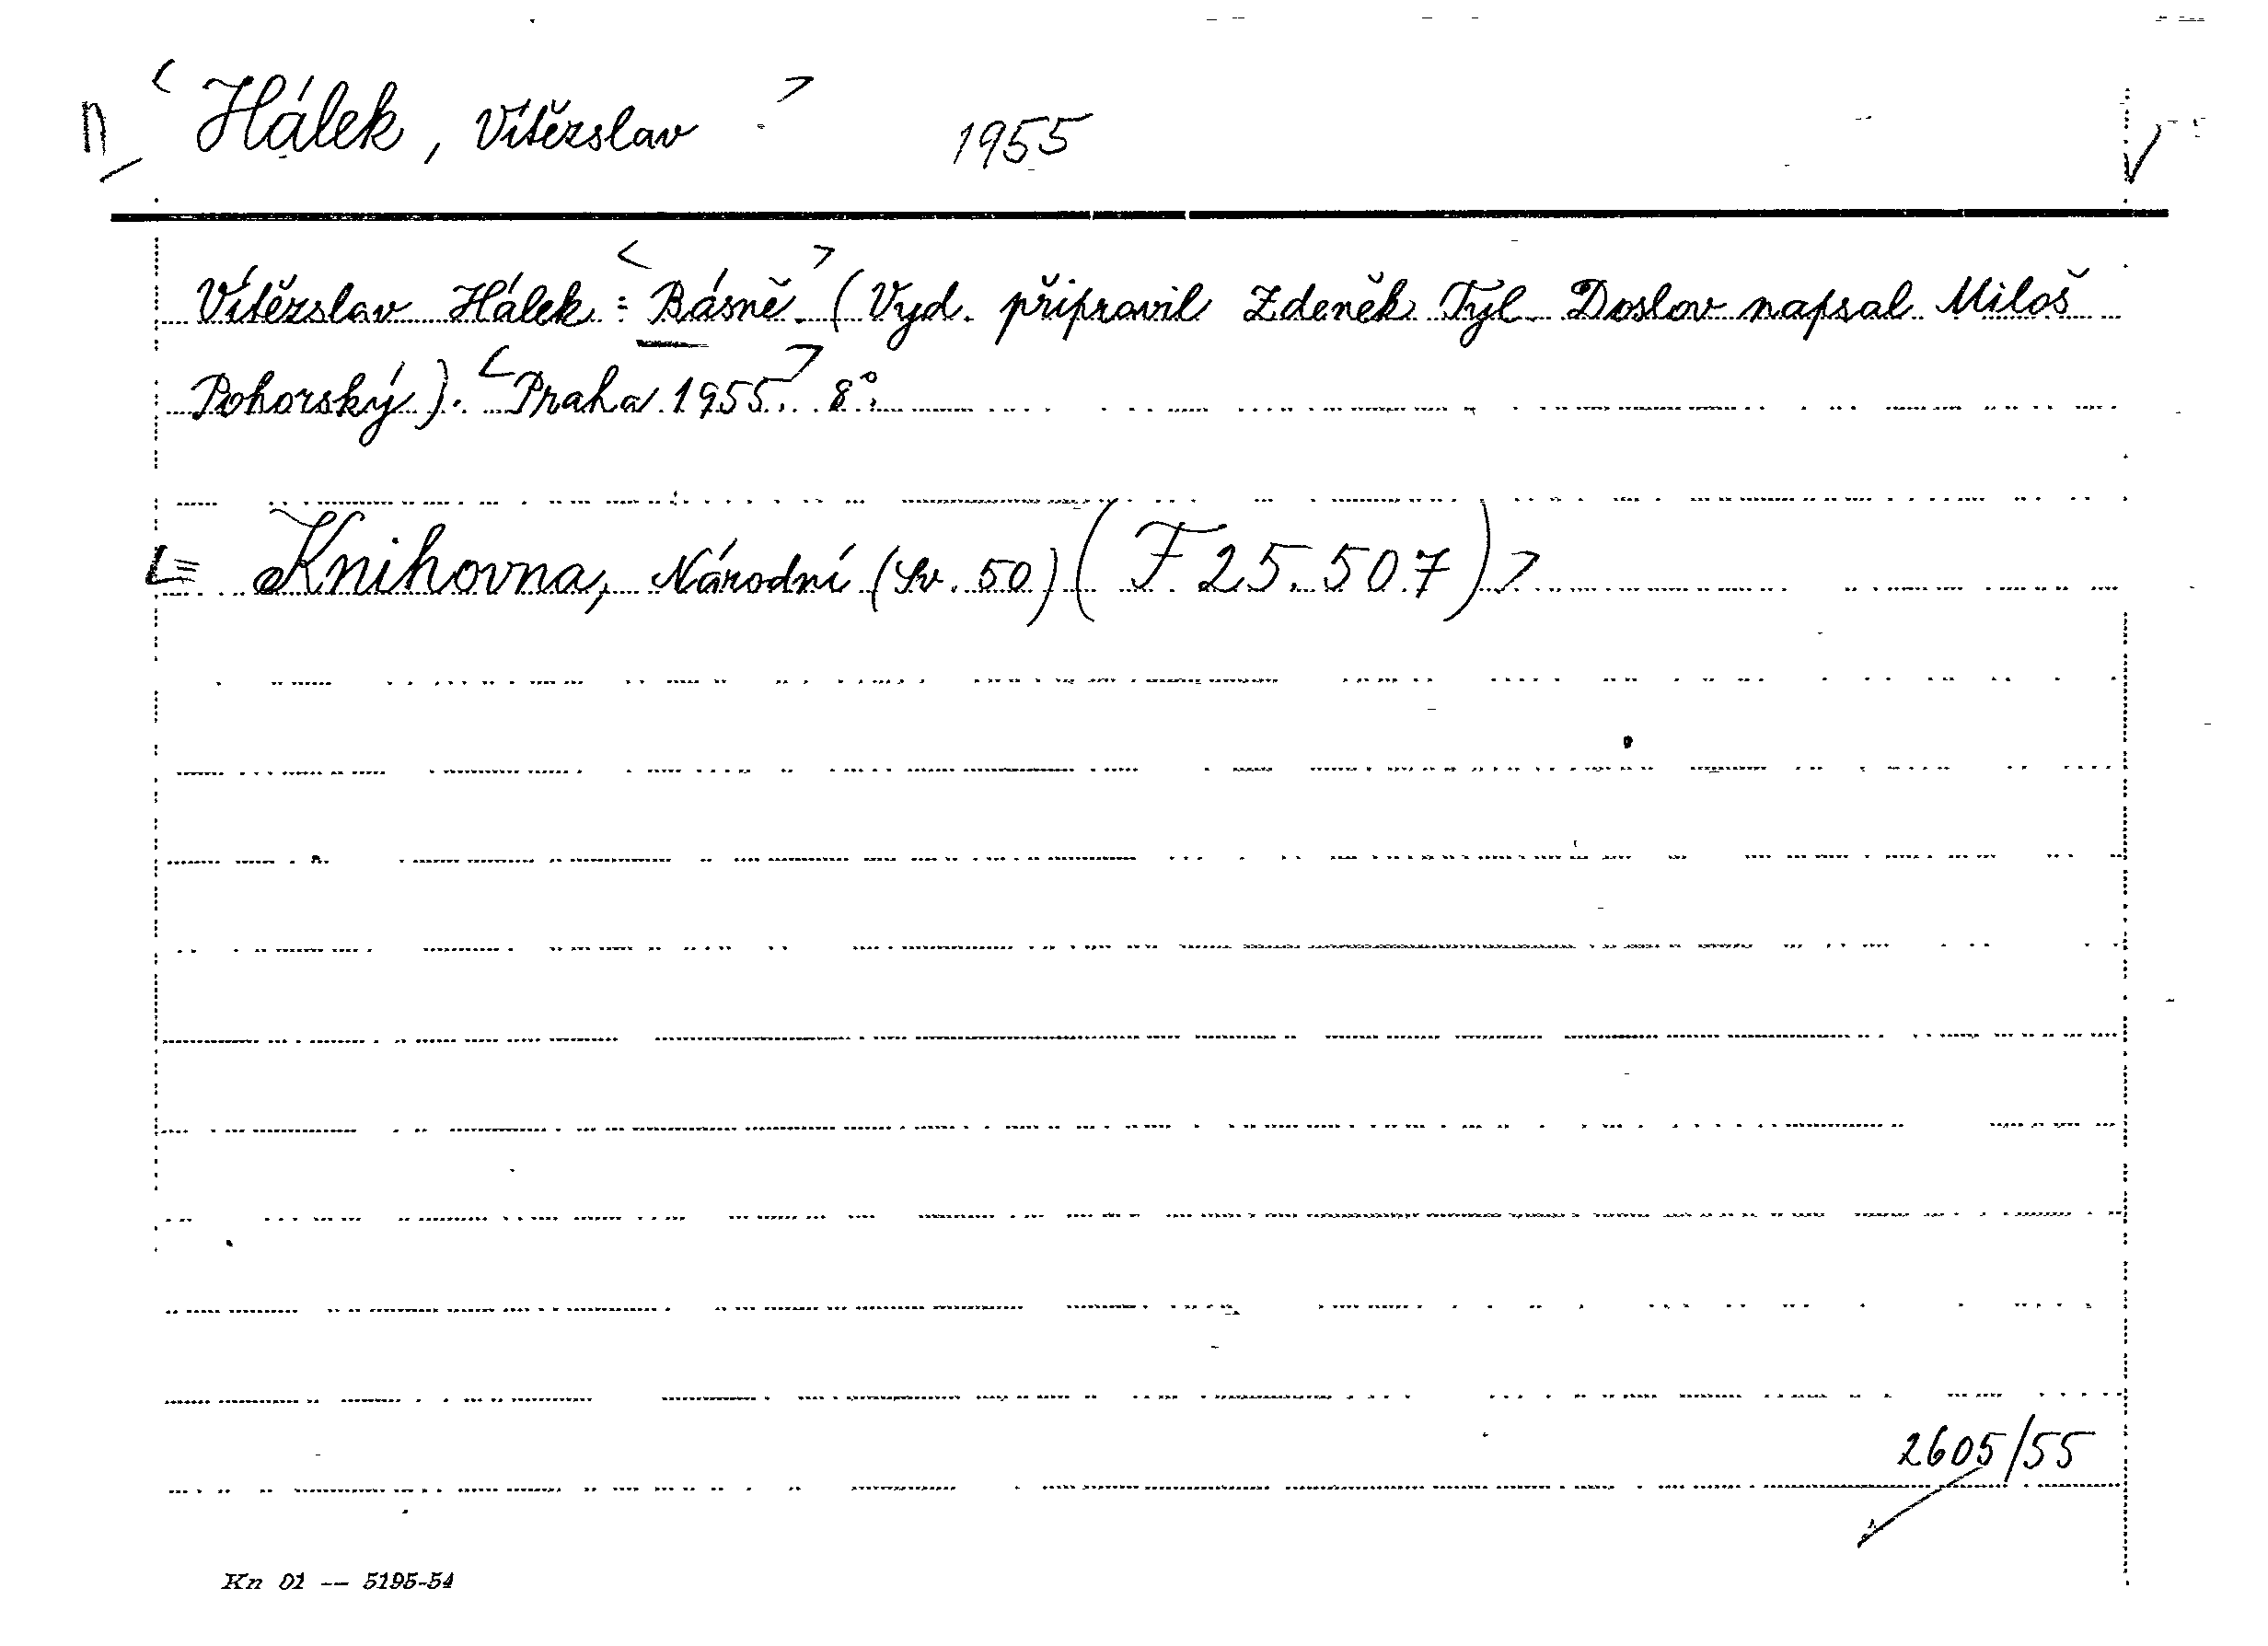 n < Hálek, Vítězslav > 1955
Vítězslav Hálek: <Básně.> (Vyd. připravil Zdeněk Tyl. Doslov napsal Miloš
Pohorský). <Praha 1955.> 8°.
<= Knihovna, Národní (Sv. 50) (F 25.507)>
2605/55
Kn 01 -- 5195-54